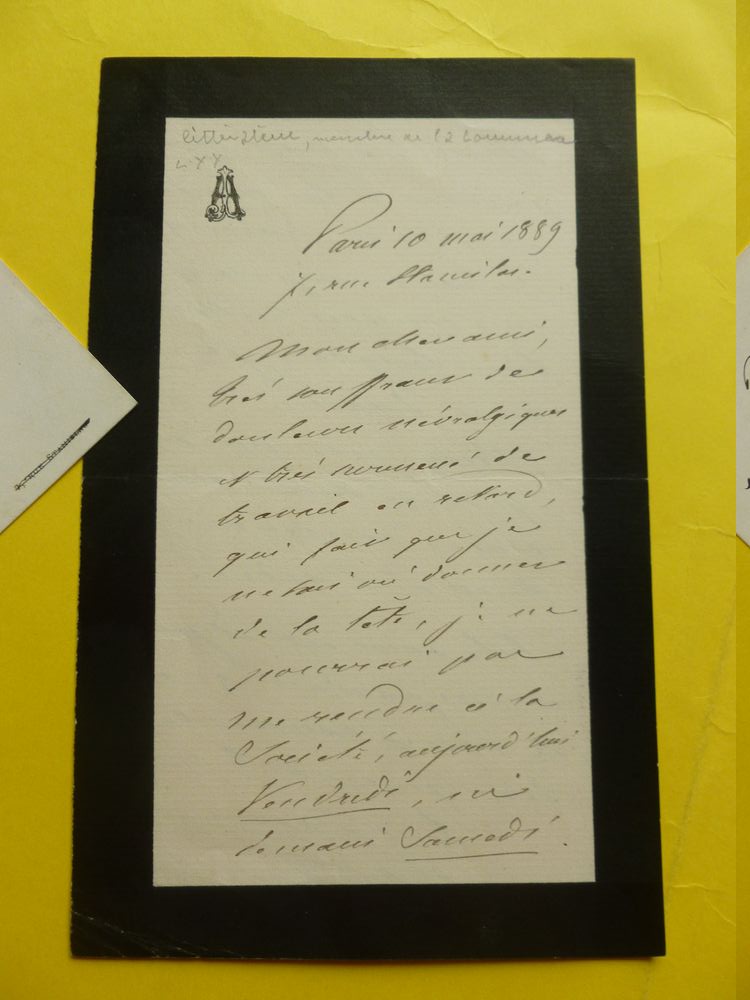 littérateur, membre de la Commune
A
Paris 10 mai 1889
7, rue Stanislas.
Mon cher ami,
très souffrant de
douleurs névralgiques
et très surmené de
travail en retard,
qui fait que je
ne sais où donner
de la tête, je ne
pourrai pas
me rendre à la
Société, aujourd'hui
Vendredi, ni
demain Samedi.